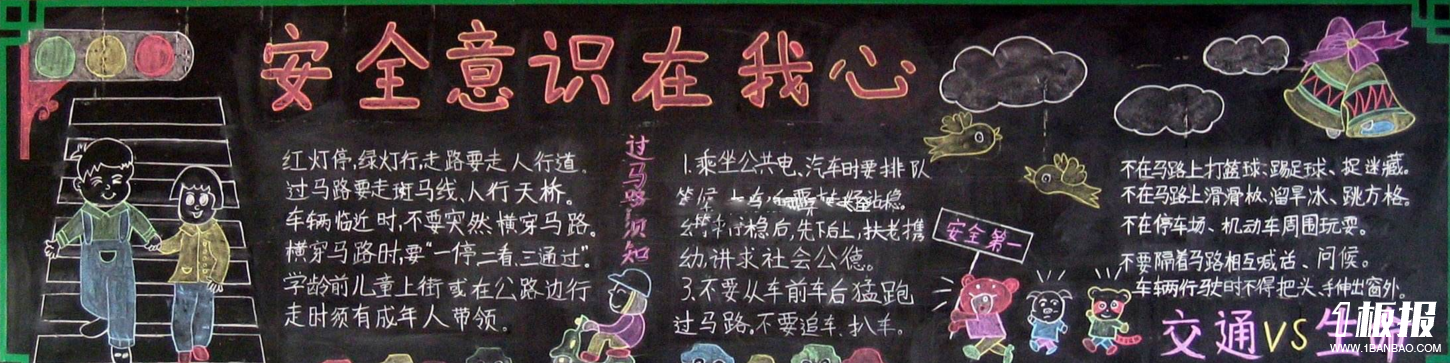 安全意识在我心
红灯停,绿灯行,走路要走人行道。
过马路要走斑马线、人行天桥。
车辆临近时,不要突然横穿马路。
横穿马路时,要“一停二看,三通过”。
学龄前儿童上街或在公路边行
走时须有成年人带领。
过马路须知
1.乘坐公共电、汽车时要排队
等候
稳后,先下后上,扶老携
幼,讲求社会公德。
3.不要从车前车后猛跑
过马路。不要追车、扒车。
安全第一
不在马路上打篮球、踢足球、捉迷藏。
不在马路上滑滑板、溜旱冰、跳方格。
不在停车场、机动车周围玩耍。
不要隔着马路相互喊话、问候。
车辆行驶时不得把头、手伸出窗外。
交通VS生
1板报
WWW.1BANBAO.COM